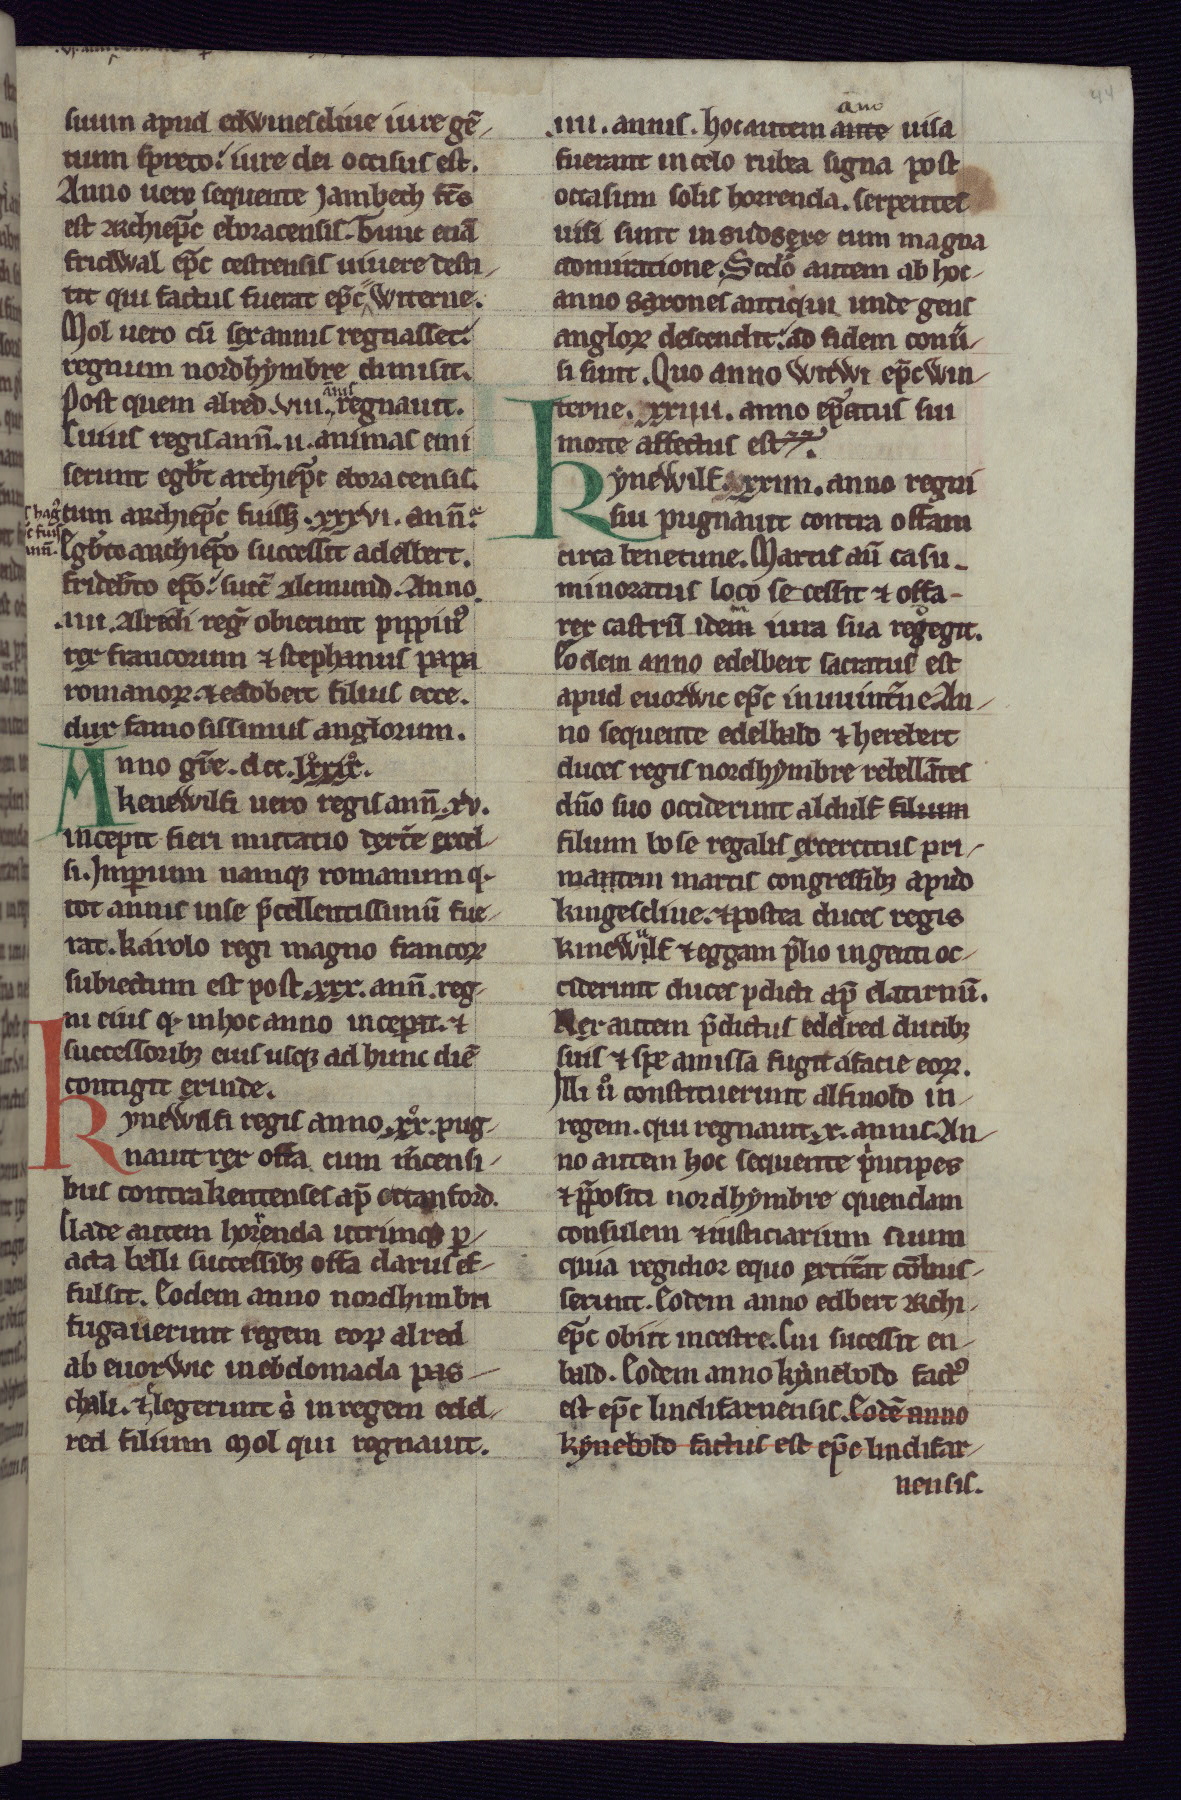 suum apud edWinescliue iure gē-
tium spreto: iure dei occisus est.
Anno uero sequente Jambech fc̄s
est archiepc̄ eboracensis. hunc etiā
fridWal epc̄ cestrensis uiuere desti-
tit qui factus fuerat epc̄ Witerne.
Mol uero cū sex annis regnasset:
regnum nordhymbre dimisit.
Post quem alred .viii. annis regnauit.
Cuius regis ann̄. ii. animas emi
serunt egbt̄ archiepc̄ eboracensis.
tum archiepc̄ fuiss; .xxxvi. ann̄.
Egbt̄o archiepo successit adelbert.
fridebt̄o epo: succ̄ Alcmund. Anno
.iiii. Alrichi reḡ obierunt pippin9
rex francorum ⁊ stephanus papa
romanoꝝ. ⁊ edobert filius ecce.
dux famosissimus anglorum.
Anno gr̄e. dcc. lxxixͦ.
kenewilfi uero regis ann̄ .xv.
incepit fieri mutatio dexte excel-
si. Imperium namq; romanum q.
tot annis in se p̄cellentissimū fue-
rat. karolo regi magno francoꝝ
subiectum est post .xxx. ann̄. reg-
ni eius q. in hoc anno incepit. ⁊
successorib; eius usq; ad hunc diē
contigit exinde.
KyneWlfi regis anno .xxͦ. pug-
nauit rex offa cum m̄censi-
bus contra kentenses ap̄ ottanford.
Clade autem horrenda utrimq; p-
acta belli successib; offa clarus ef-
fulsit. Eodem anno nordhimbri
fugauerunt regem eoꝝ alred
ab euorWic in ebdomada pas-
chali. ⁊ elegerunt s̄ in regem edel-
red filium mol qui regnauit.
.iiii. annis. hoc autem ante anno uisa
fuerant in celo rubea signa post
occasum solis horrenda. serpentes
uisi sunt in sudsexe cum magna
admiratione. Sc̄do autem ab hoc
anno saxones antiqui unde gens
angloꝝ descendit: ad fidem conū-
si sunt. Quo anno WitWi epc̄ Win-
terne .xxiiii. anno ep̄atus sui
morte affectus est.
KyneWlf .xxiiii. anno regni
sui pugnauit contra offam
circa benetune. Martis aū casu
minoratus loco se cessit ⁊ offa
rex castrū idem iura sua rex egit.
Eodem anno edelbert sacratus est
apud euorWic epc̄ in uuiterne. An-
no sequente edelbald ⁊ herebert
duces regis nordhymbre rebellātes
dn̄o suo occiderunt aldulf filium
filium bose regalis exercitus pri-
mantem martis congressib; apud
kingescliue. ⁊ postea duces regis
kineWlf ⁊ eggam p̄lio ingenti oc-
ciderunt duces pdicti ap̄ clatirnū.
Rex autem p̄dictus edelred ducib;
suis ⁊ spe amissa fugit a facie eoꝝ.
Illi ū constituerunt alfwold in
regem. qui regnauit .x. annis. An-
no autem hoc sequente p̄ncipes
⁊ p̄positi nordhymbre quendam
consulem ⁊ iusticiarium suum
quia regidior equo extiterat cōbus-
serunt. Eodem anno edbert archi-
epc̄ obiit in cestre. Cui sucessit en-
bald. Eodem anno kynebold fact9
est epc̄ lindifarnensis. Eodē anno
kynebold factus est epc̄ lindifar-
nensis.